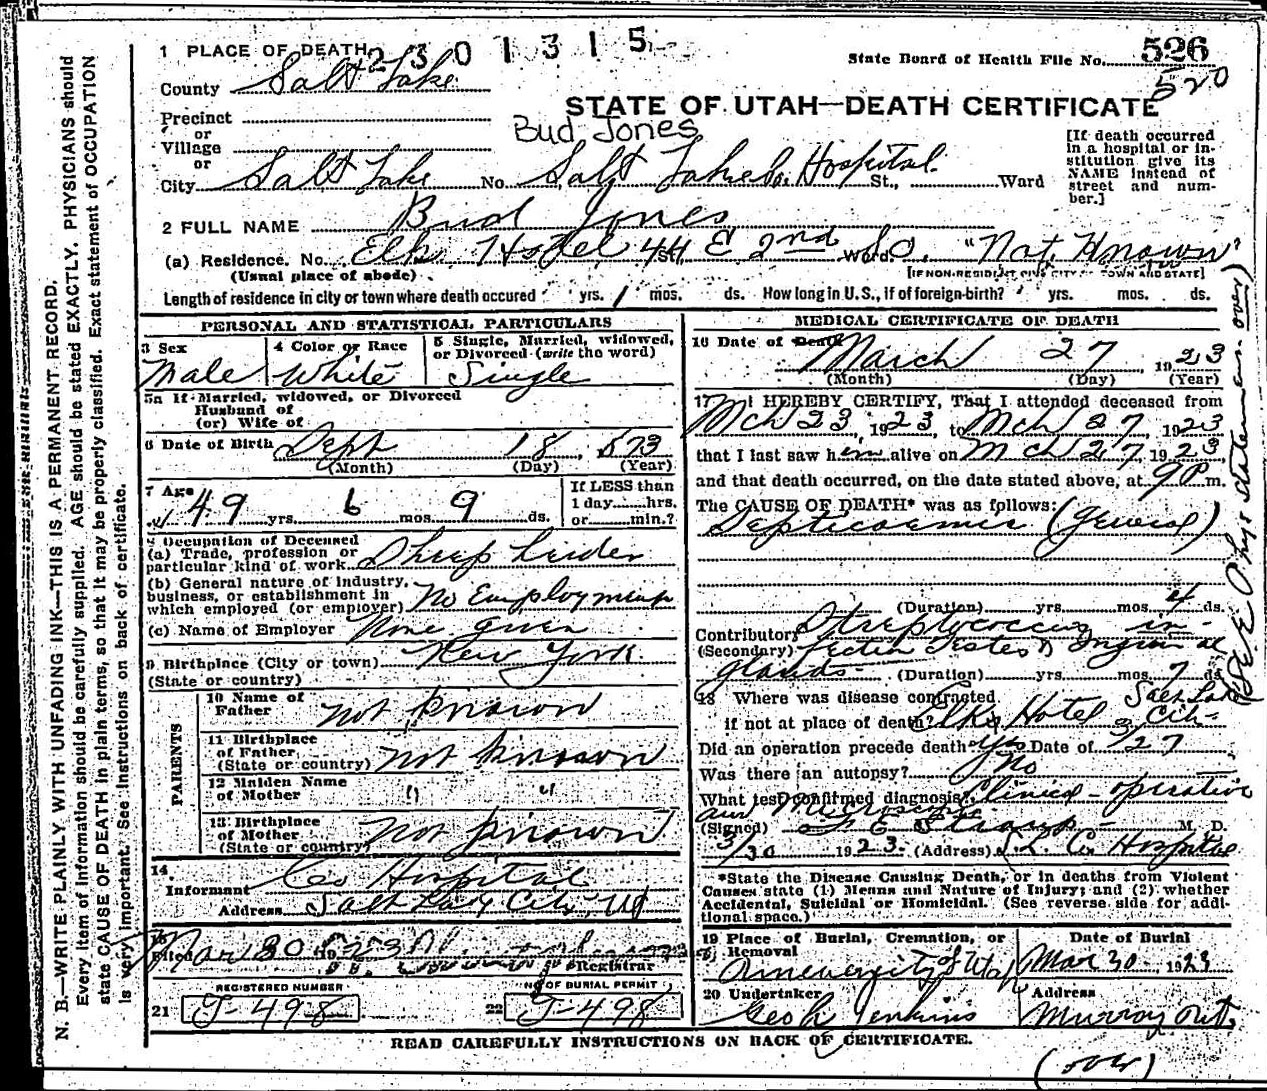 2301315
State Board of Health File No. 526
520
1 PLACE OF DEATH
County Salt Lake
STATE OF UTAH—DEATH CERTIFICATE
Precinct
or
Village
or
Bud Jones
City Salt Lake No. Salt Lake Co. Hospital St., Ward
[If death occurred in a hospital or institution give its NAME instead of street and number.]
2 FULL NAME Bud Jones
(a) Residence. No. Elk Hotel 44 E 2nd So. St. Ward. "Not Known"
(Usual place of abode)
[IF NON-RESIDENT GIVE CITY OR TOWN AND STATE]
Length of residence in city or town where death occured yrs. 1 mos. ds. How long in U.S., if of foreign-birth? yrs. mos. ds.
PERSONAL AND STATISTICAL PARTICULARS
3 Sex Male
4 Color or Race White
5 Single, Married, widowed, or Divorced (write the word) Single
5a If Married, widowed, or Divorced
Husband of
(or) Wife of
6 Date of Birth Sept 18, 1873
(Month) (Day) (Year)
7 Age 49 yrs. 6 mos. 9 ds.
If LESS than
1 day hrs.
or min.?
8 Occupation of Deceased
(a) Trade, profession or particular kind of work Sheep herder
(b) General nature of industry, business, or establishment in which employed (or employer) No Employment
(c) Name of Employer None given
9 Birthplace (City or town) New York
(State or country)
PARENTS
10 Name of Father Not Known
11 Birthplace of Father (State or country) Not Known
12 Maiden Name of Mother " "
13 Birthplace of Mother (State or country) Not Known
14. Informant Co Hospital
Address Salt Lake City, Ut
15 Filed Mar 30 1923
Registrar
REGISTERED NUMBER
21 J-498
NO OF BURIAL PERMIT
22 J-498
MEDICAL CERTIFICATE OF DEATH
16 Date of Death March 27 1923
(Month) (Day) (Year)
17 I HEREBY CERTIFY, That I attended deceased from
Mch 23, 1923, to Mch 27, 1923
that I last saw him alive on Mch 27, 1923,
and that death occurred, on the date stated above, at 9 P m.
The CAUSE OF DEATH* was as follows:
Septicaemia (General)
(Duration) yrs. mos. 4 ds.
Contributory Streptococcus in-
(Secondary) fection Testes & Inguinal
glands (Duration) yrs. mos. 7 ds.
18 Where was disease contracted Salt Lake
if not at place of death? Elks Hotel City
Did an operation precede death? Yes Date of 3/27
Was there an autopsy? No
What test confirmed diagnosis? Clinical - operative
and Microscopic
(Signed) M. D.
3/30 1923. (Address) S. L. Co. Hospital
*State the Disease Causing Death, or in deaths from Violent Causes state (1) Means and Nature of Injury; and (2) whether Accidental, Suicidal or Homicidal. (See reverse side for additional space.)
19 Place of Burial, Cremation, or Removal University of Utah
Date of Burial Mar 30, 1923
20 Undertaker Geo Jenkins
Address Murray Ut.
READ CAREFULLY INSTRUCTIONS ON BACK OF CERTIFICATE.
(over)
N. B.—WRITE PLAINLY WITH UNFADING INK—THIS IS A PERMANENT RECORD.
Every item of information should be carefully supplied. AGE should be stated EXACTLY. PHYSICIANS should
state CAUSE OF DEATH in plain terms, so that it may be properly classified. Exact statement of OCCUPATION
is very important. See instructions on back of certificate.
(SEE Phys statement over)